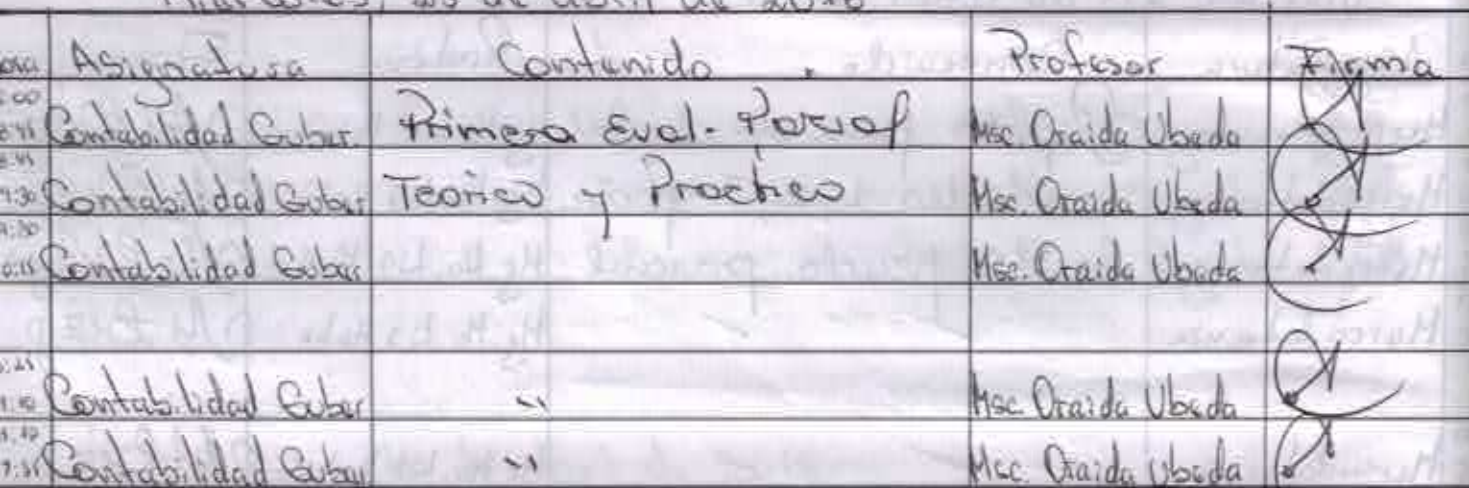 de abril de
Hora Asignatura Contenido Profesor Firma
8:45 Contabilidad Guber. Primera Eval. Parcial Msc. Oraida Ubeda
8:45
9:30 Contabilidad Guber Teorico y Practico Msc. Oraida Ubeda
9:30
Contabilidad Guber Msc. Oraida Ubeda
Contabilidad Guber " Msc. Oraida Ubeda
Contabilidad Guber " Msc. Oraida Ubeda